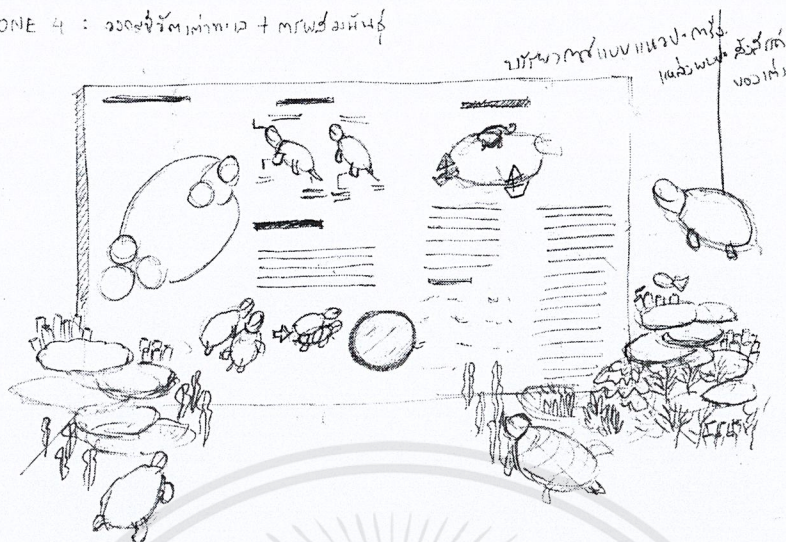 ONE 4 : วงจรชีวิตเต่าทะเล + การผสมพันธุ์
บรรยากาศแบบแนวปะการัง
แหล่งพบปะสังสรรค์
ของเต่า